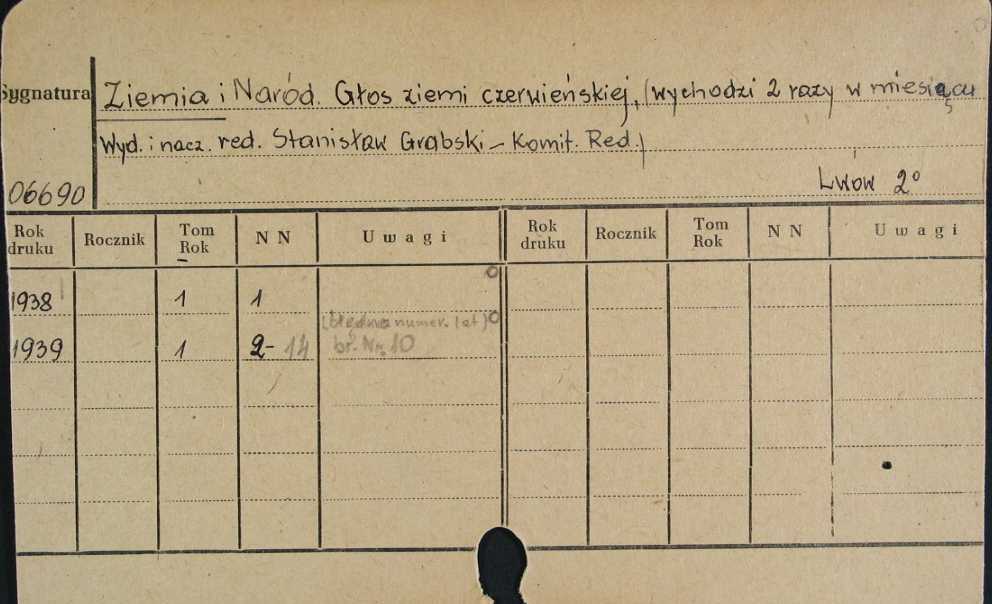 Sygnatura Ziemia i Naród. Głos ziemi czerwieńskiej, (wychodzi 2 razy w miesiącu
Wyd. i nacz. red. Stanisław Grabski - Komit. Red.)
06690 Lwów 2°
Rok druku Rocznik Tom Rok N N Uwagi Rok druku Rocznik Tom Rok N N Uwagi
1938 1 1 0
(błędna numer. lat) 0
1939 1 2-14 br. Nr. 10